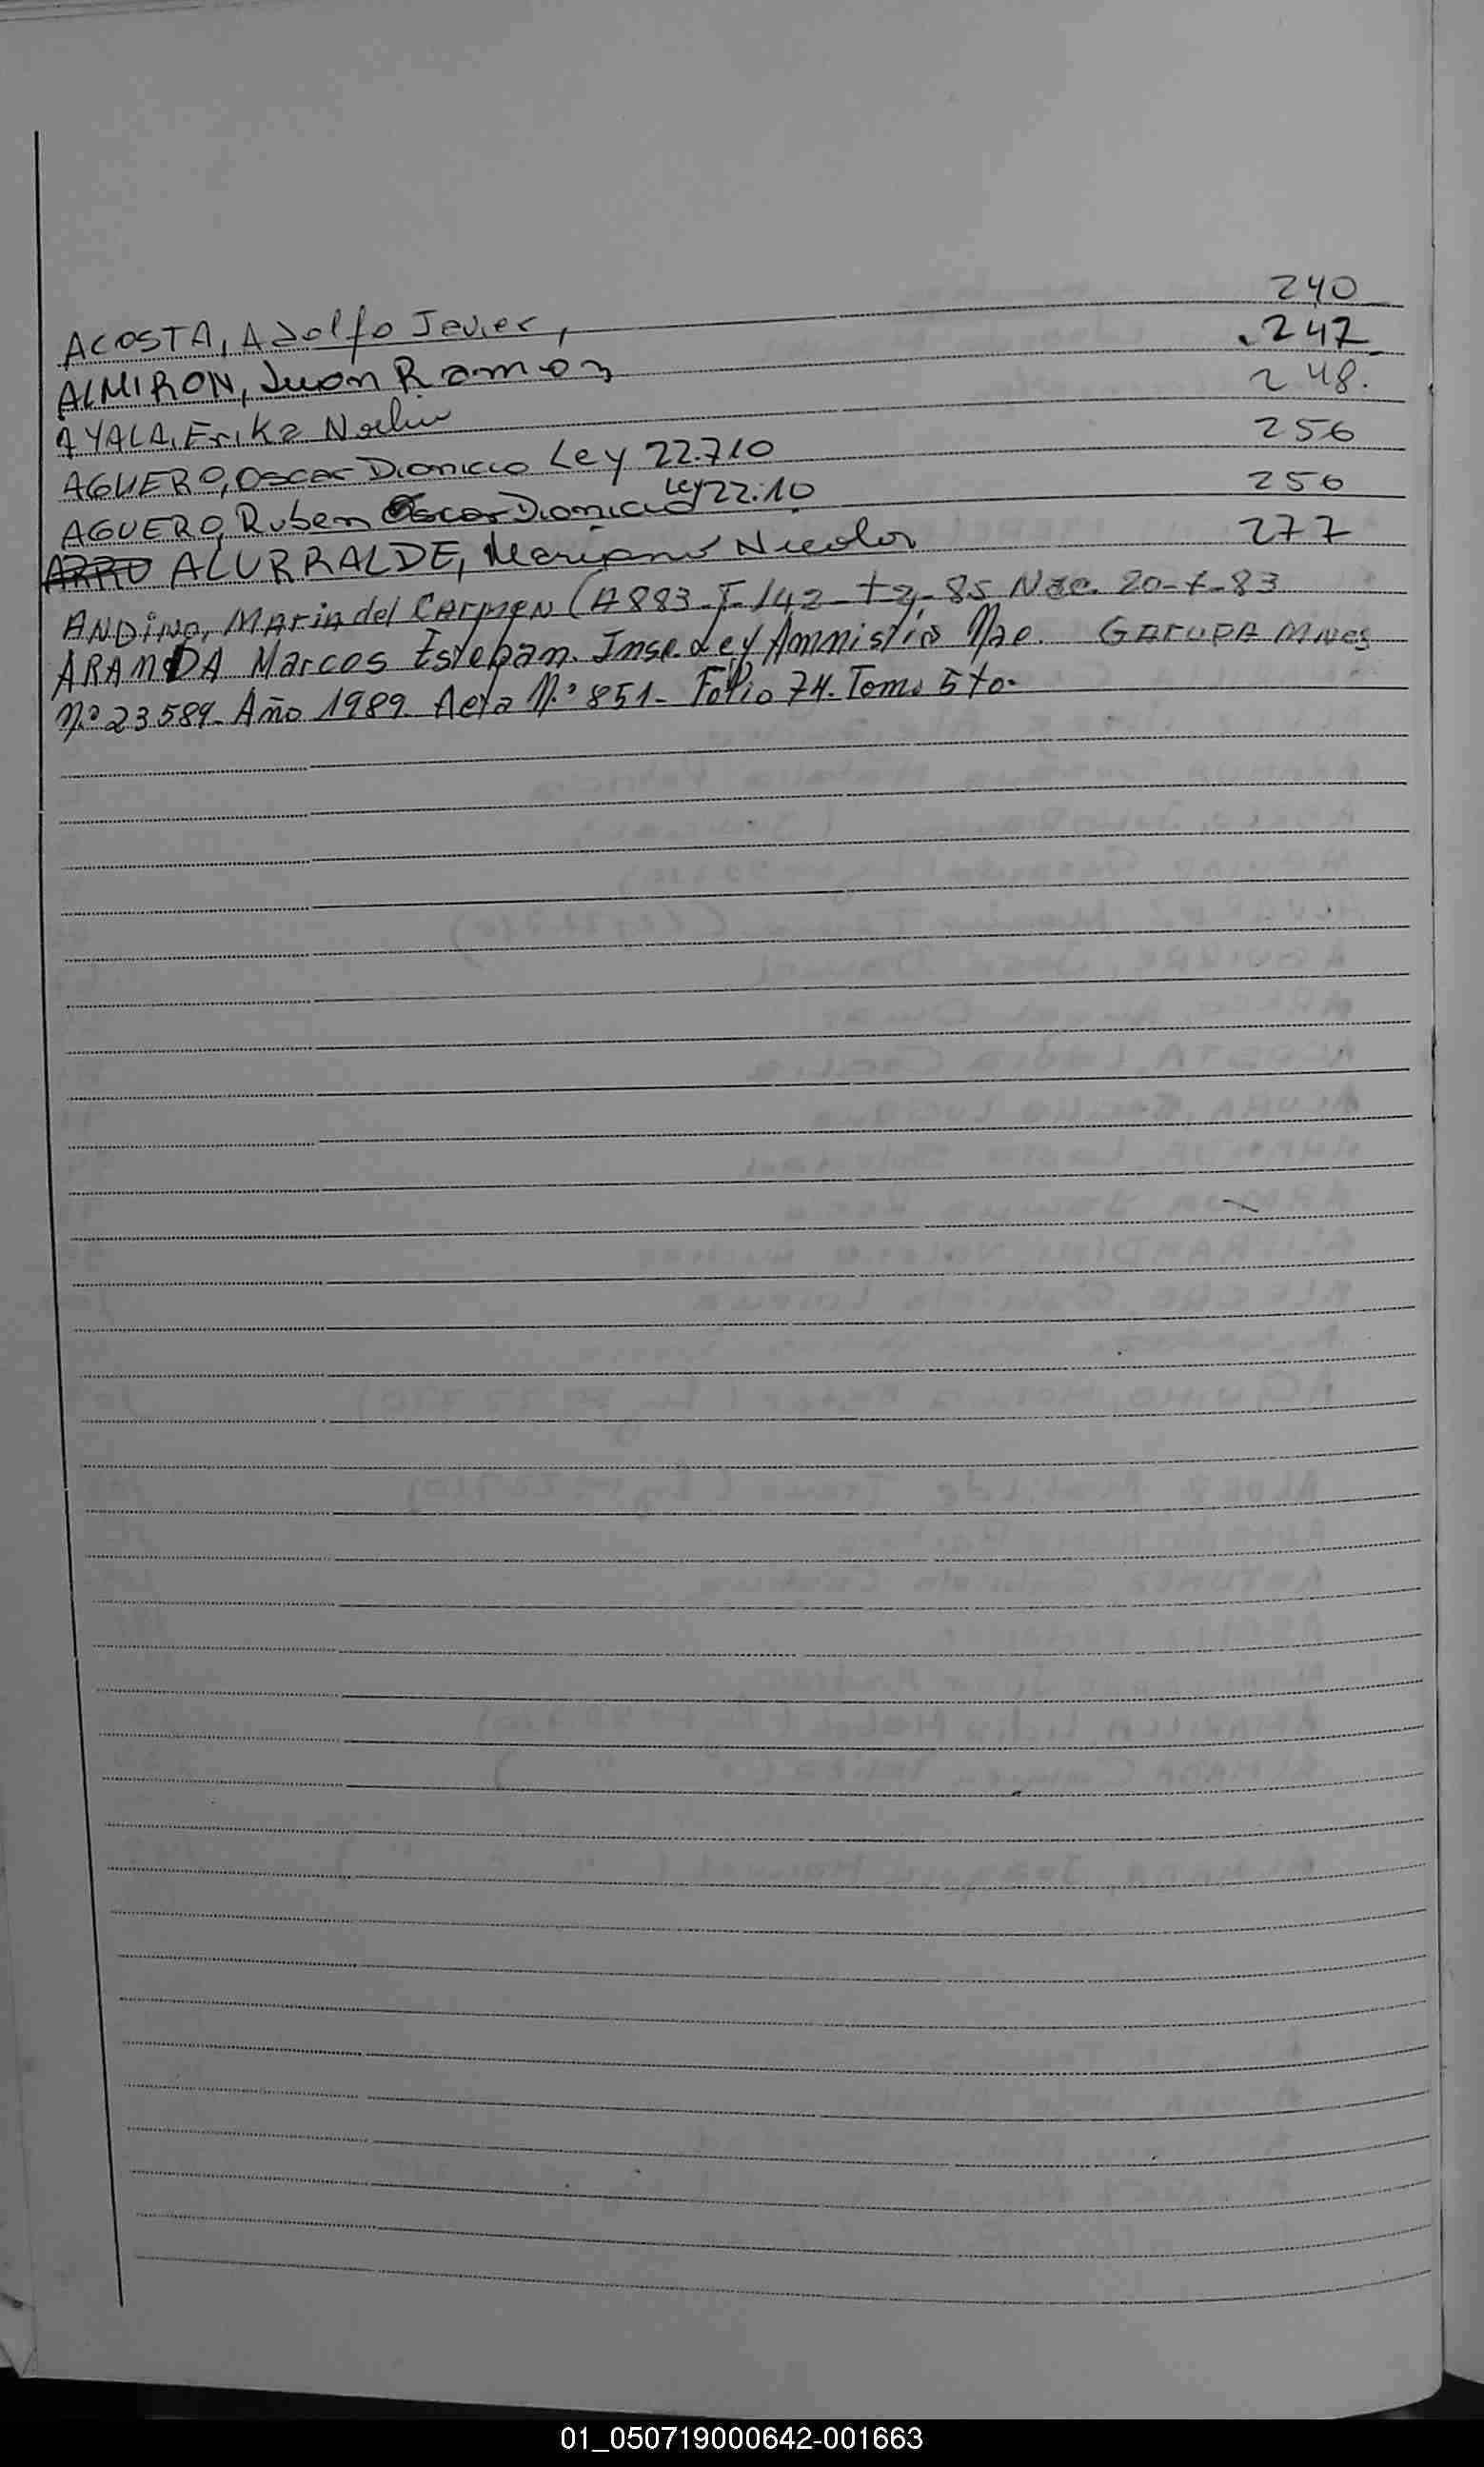 ACOSTA, Adolfo Javier, 240
ALMIRON, Juan Ramon .247
AYALA, Erika Noelia 248.
AGUERO, Oscar Dionicio Ley 22.710 256
AGUERO, Ruben Oscar Dionicio Ley 22.10 256
ARRU ALURRALDE, Mariano Nicolas 277
ANDiNO, MAria del CArmEN (A 883-T-142-t2-85 Nac. 20-X-83
ARANDA Marcos Esteban. Insc. Ley Amnistia Nac. GARUPA MNES
N.º 23589- Año 1989 Acta N.º 851- Folio 74. Tomo 5to.
01_050719000642-001663